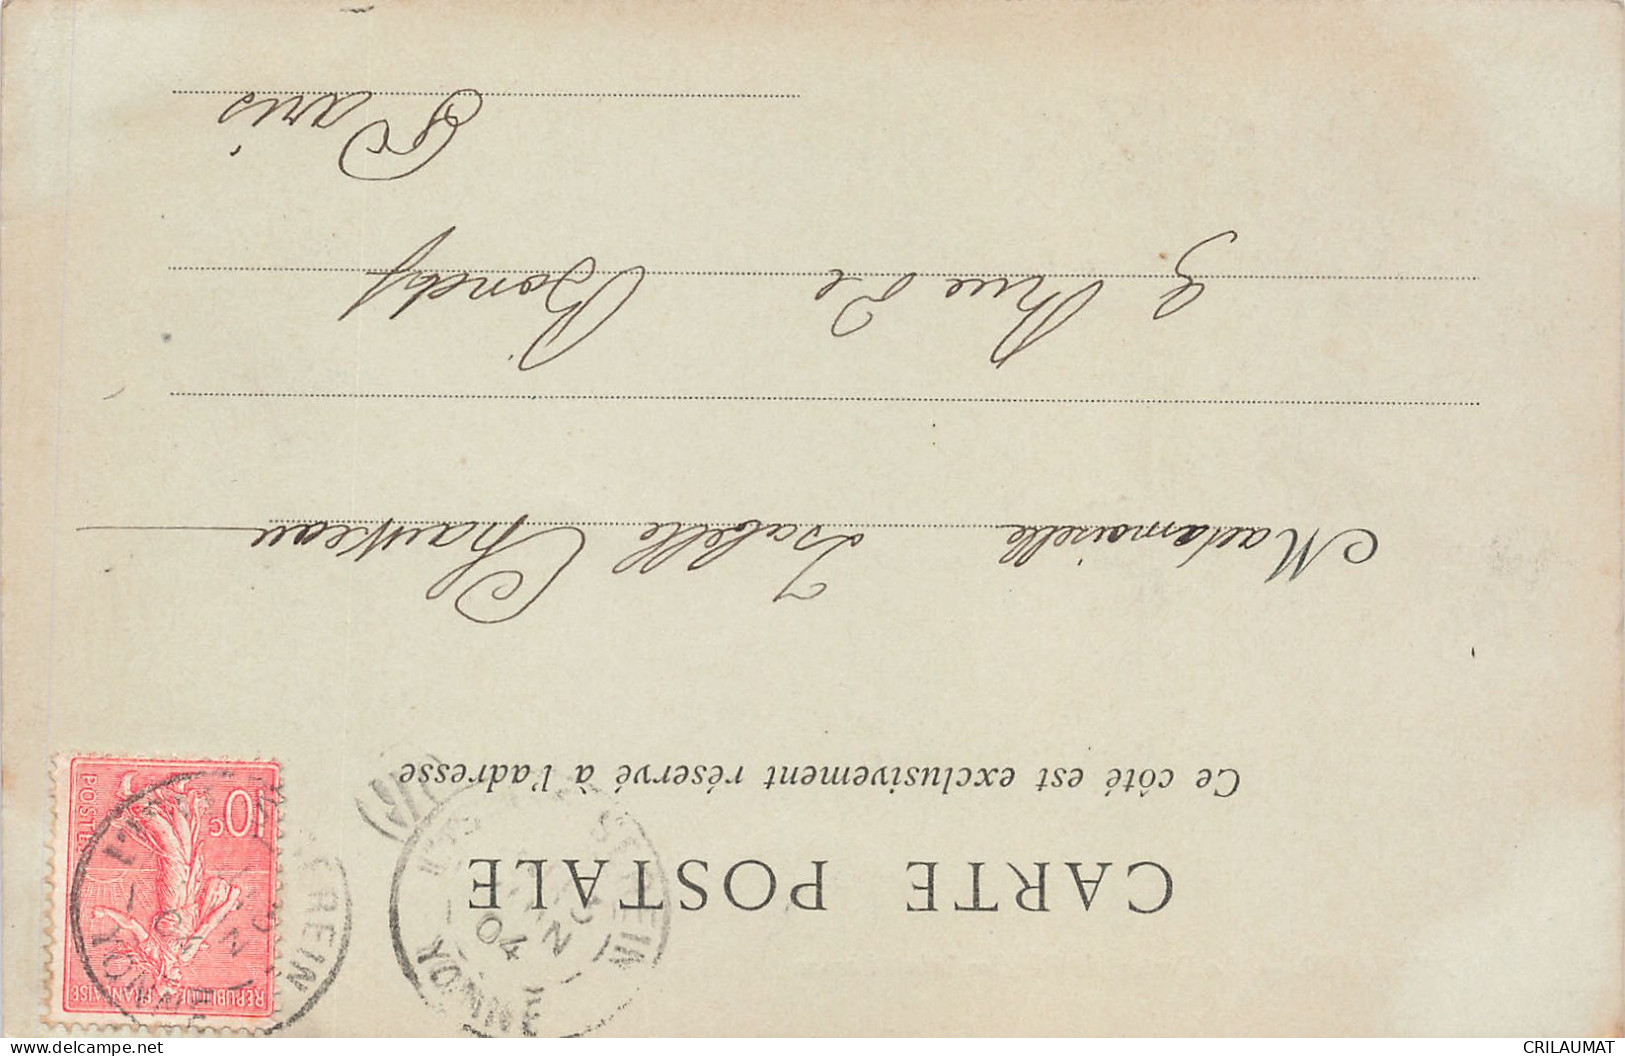 CARTE POSTALE
Ce côté est exclusivement réservé à l'adresse
Mademoiselle Isabelle Chauveau
9 Rue de Bondy
Paris
10c
POSTES
REPUBLIQUE FRANÇAISE
YONNE
04
YONNE
04
https://www.delcampe.net
CRILAUMAT